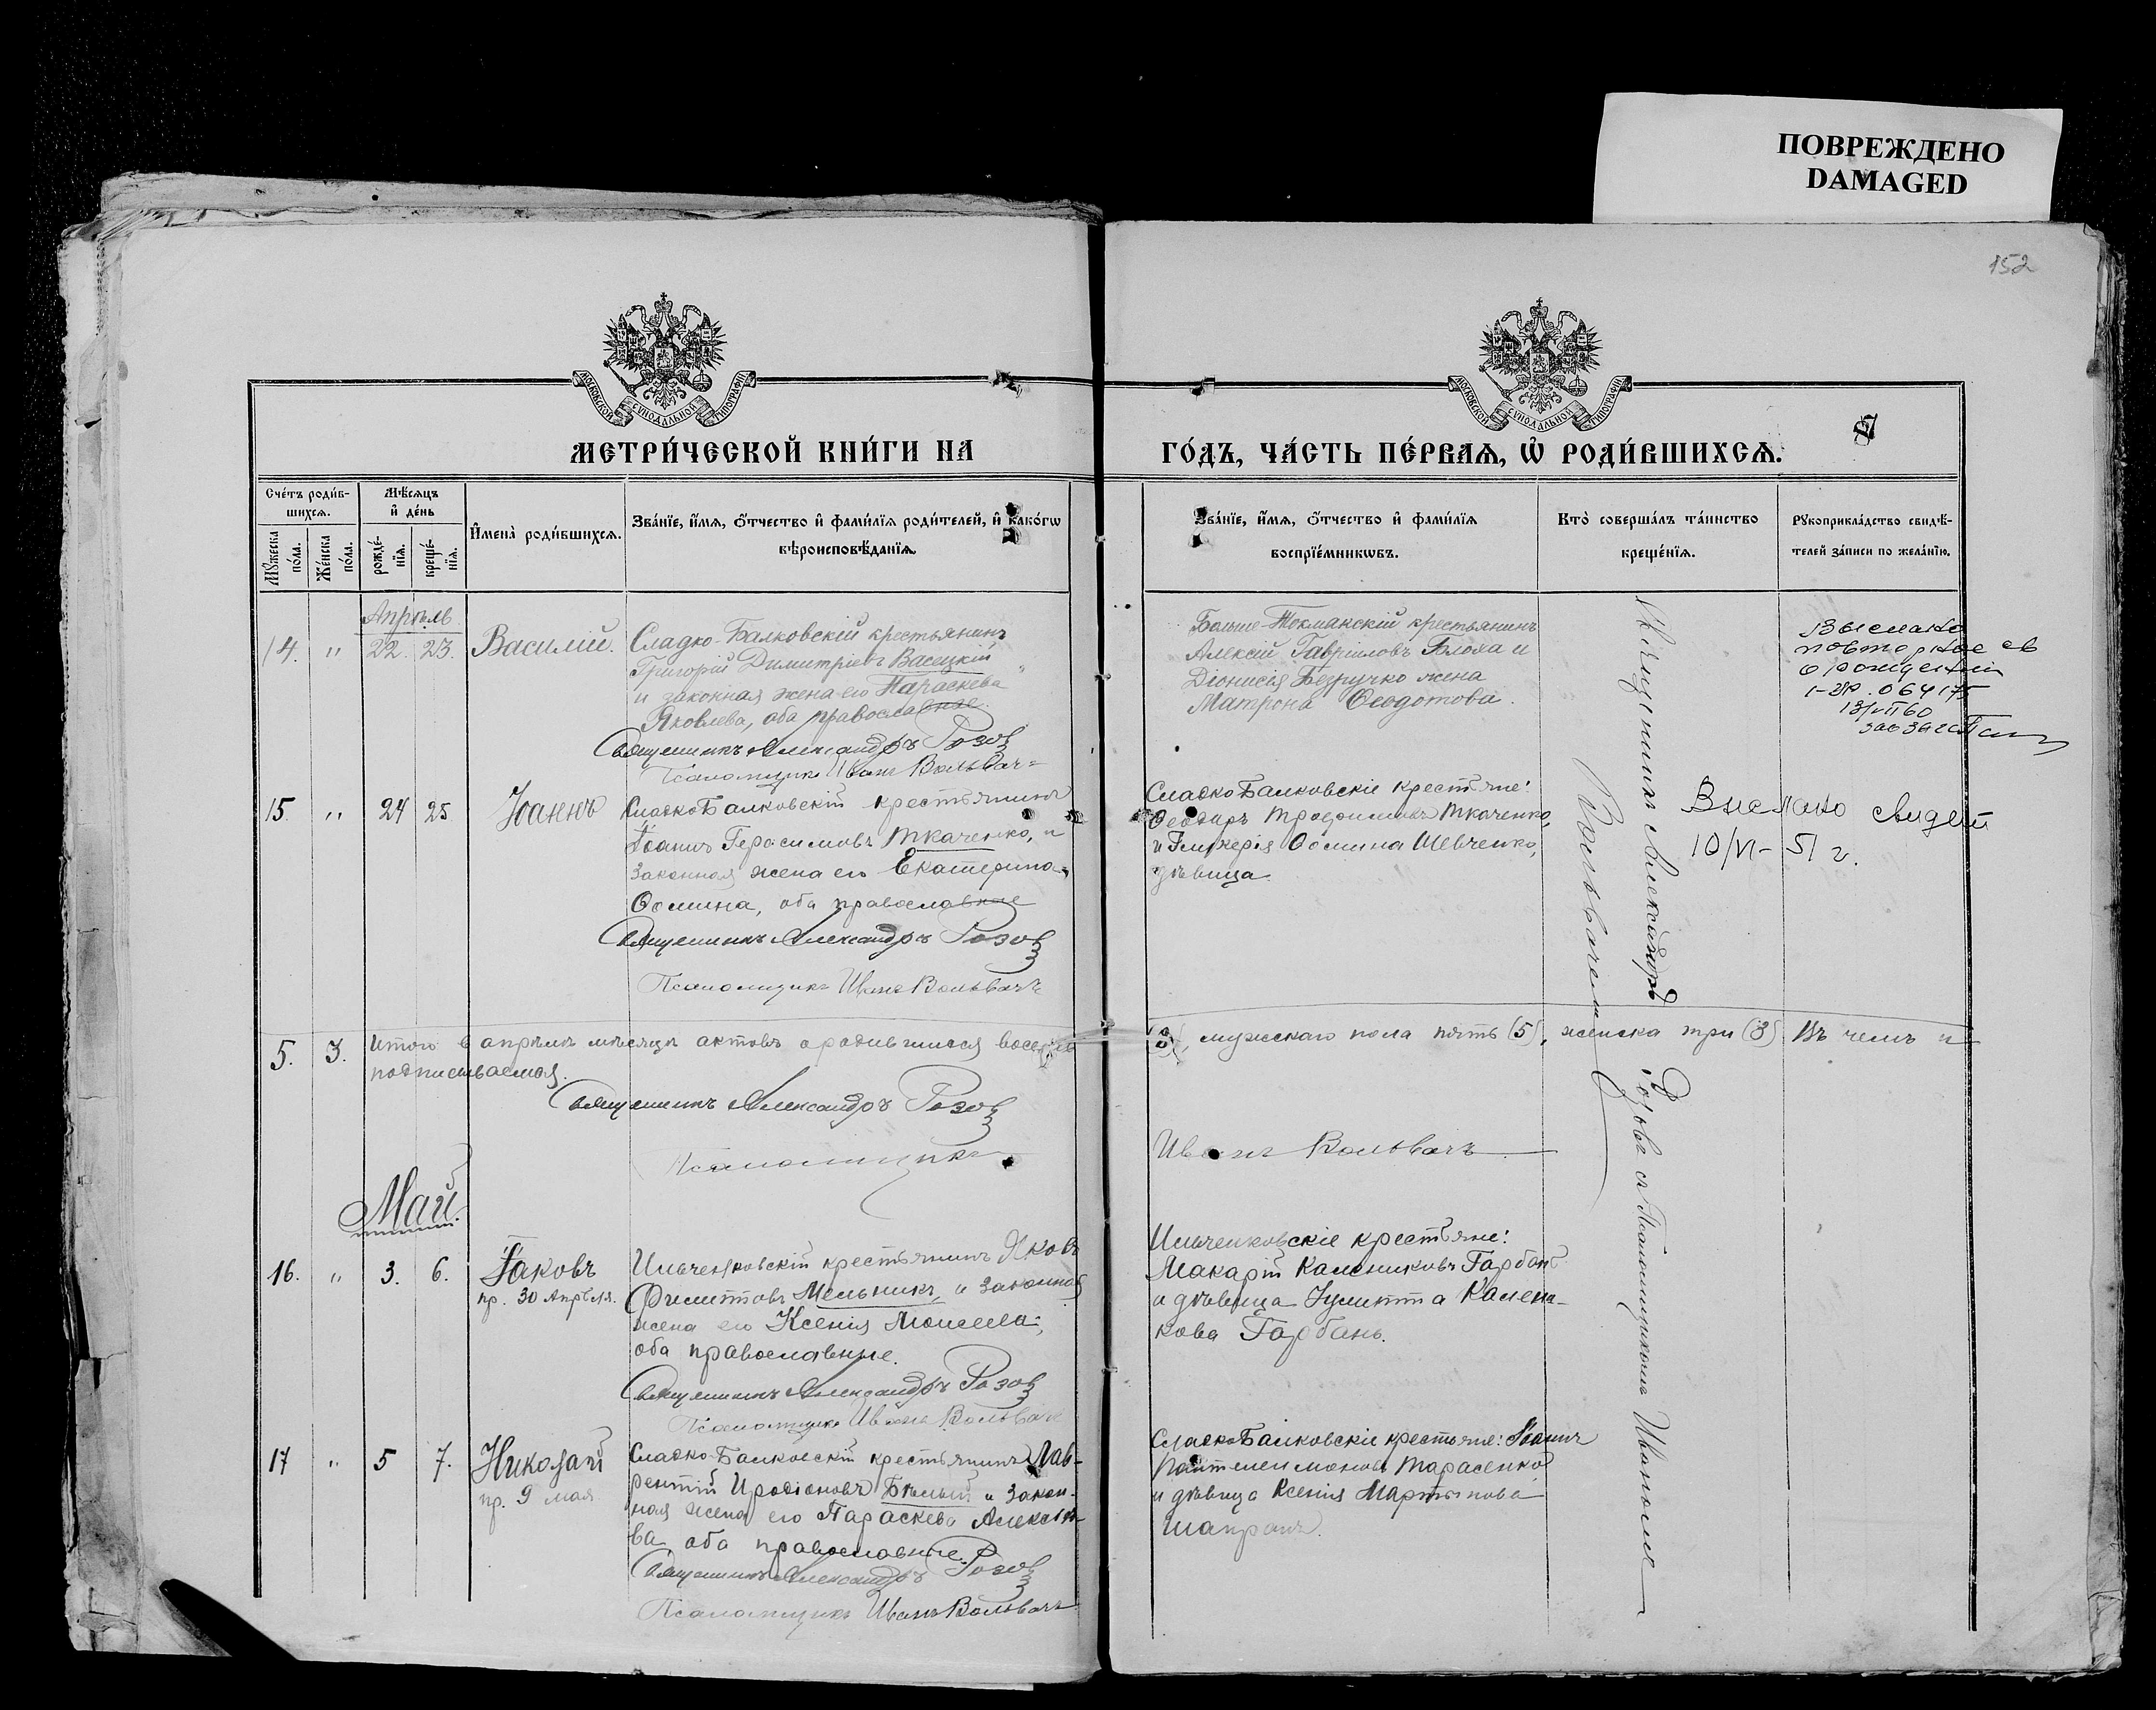 ПОВРЕЖДЕНО
DAMAGED
152
МОСКОВСКОЙ СѴНОДАЛЬНОЙ ТИПОГРАФІИ
МОСКОВСКОЙ СѴНОДАЛЬНОЙ ТИПОГРАФІИ
МЕТРИ́ЧЕСКОЙ КНИ́ГИ НА
ГО́ДЪ, ЧА́СТЬ ПЕ́РВАѦ, Ѽ РОДИ́ВШИХСѦ.
Сче́тъ роди́в-
шихсѧ.
Мꙋ́жеска по́ла.
Же́нска по́ла.
Мѣ́сѧцъ
и҆ де́нь
рожде́-
нїѧ.
креще́-
нїѧ.
И҆мена̀ роди́вшихсѧ.
Зва́нїе, и҆́мѧ, ѻ҆́тчество и҆ фами́лїѧ роди́телей, и҆ како́гѡ
вѣроисповѣ́данїѧ.
Зва́нїе, и҆́мѧ, ѻ҆́тчество и҆ фами́лїѧ
воспрїе́мникѡвъ.
Кто̀ соверша́лъ та́инство
креще́нїѧ.
Рꙋкоприкла́дство свидѣ́-
телей за́писи по жела́нїю.
Апрѣль
14. " 22. 23. Василій.
Сладко-Балковскій крестьянинъ
Григорій Димитріевъ Васецкій
и законная жена его Параскева
Яковлева, оба православные.
Священникъ Александръ Розов
Псаломщикъ Иванъ Вольвачъ
Больше-Токманскій крестьянинъ
Алексій Гавріиловъ Блоха и
Діонисія Безручко жена
Матрона Ѳеодотова.
Выслано
повторное св
о рождении
064175
15. " 24 25 Іоаннъ
СладкоБалковскій крестьянинъ
Іоаннъ Герасимовъ Ткаченко, и
законная жена его Екатерина
Ѳомина, оба православные
Священникъ Александръ Розов
Псаломщикъ Иванъ Вольвачъ
СладкоБалковскіе крестьяне:
Ѳеодоръ Трофимовъ Ткаченко,
и Гликерія Ѳомина Шевченко,
дѣвица.
Выслано свидет
10/VI - 51 г.
5. 3. Итого въ апрѣлѣ мѣсяцѣ актовъ о родившихся восемь (8), мужскаго пола пять (5), женска три (3) Въ чемъ и
подписываемся.
Священникъ Александръ Розов
Псаломщикъ Иванъ Вольвачъ
Май.
16. " 3. 6. Іаковъ
пр. 30 Апрѣля.
Ильченковскій крестьянинъ Яковъ
Филипповъ Мельникъ, и законная
жена его Ксенія Моисеева,
оба православные.
Священникъ Александръ Розов
Псаломщикъ Иванъ Вольвач
Ильченковскіе крестьяне:
Макарій Калениковъ Гарбанъ
и дѣвица Іулитта Калени-
кова Гарбань.
17 " 5 7. Николай
пр. 9 мая
Сладко-Балковскій крестьянинъ Лав-
рентій Иродіоновъ Бѣлый и закон-
ная жена его Параскева Алексѣе-
ва, оба православные.
Священникъ Александръ Розов
Псаломщикъ Иванъ Вольвачъ
СладкоБалковскіе крестьяне: Іоаннъ
Пантелеимоновъ Тарасенко
и дѣвица Ксенія Мартынова
Шапранъ.
Священникъ Александръ Розовъ съ Псаломщикомъ Иваномъ
Вольвачемъ